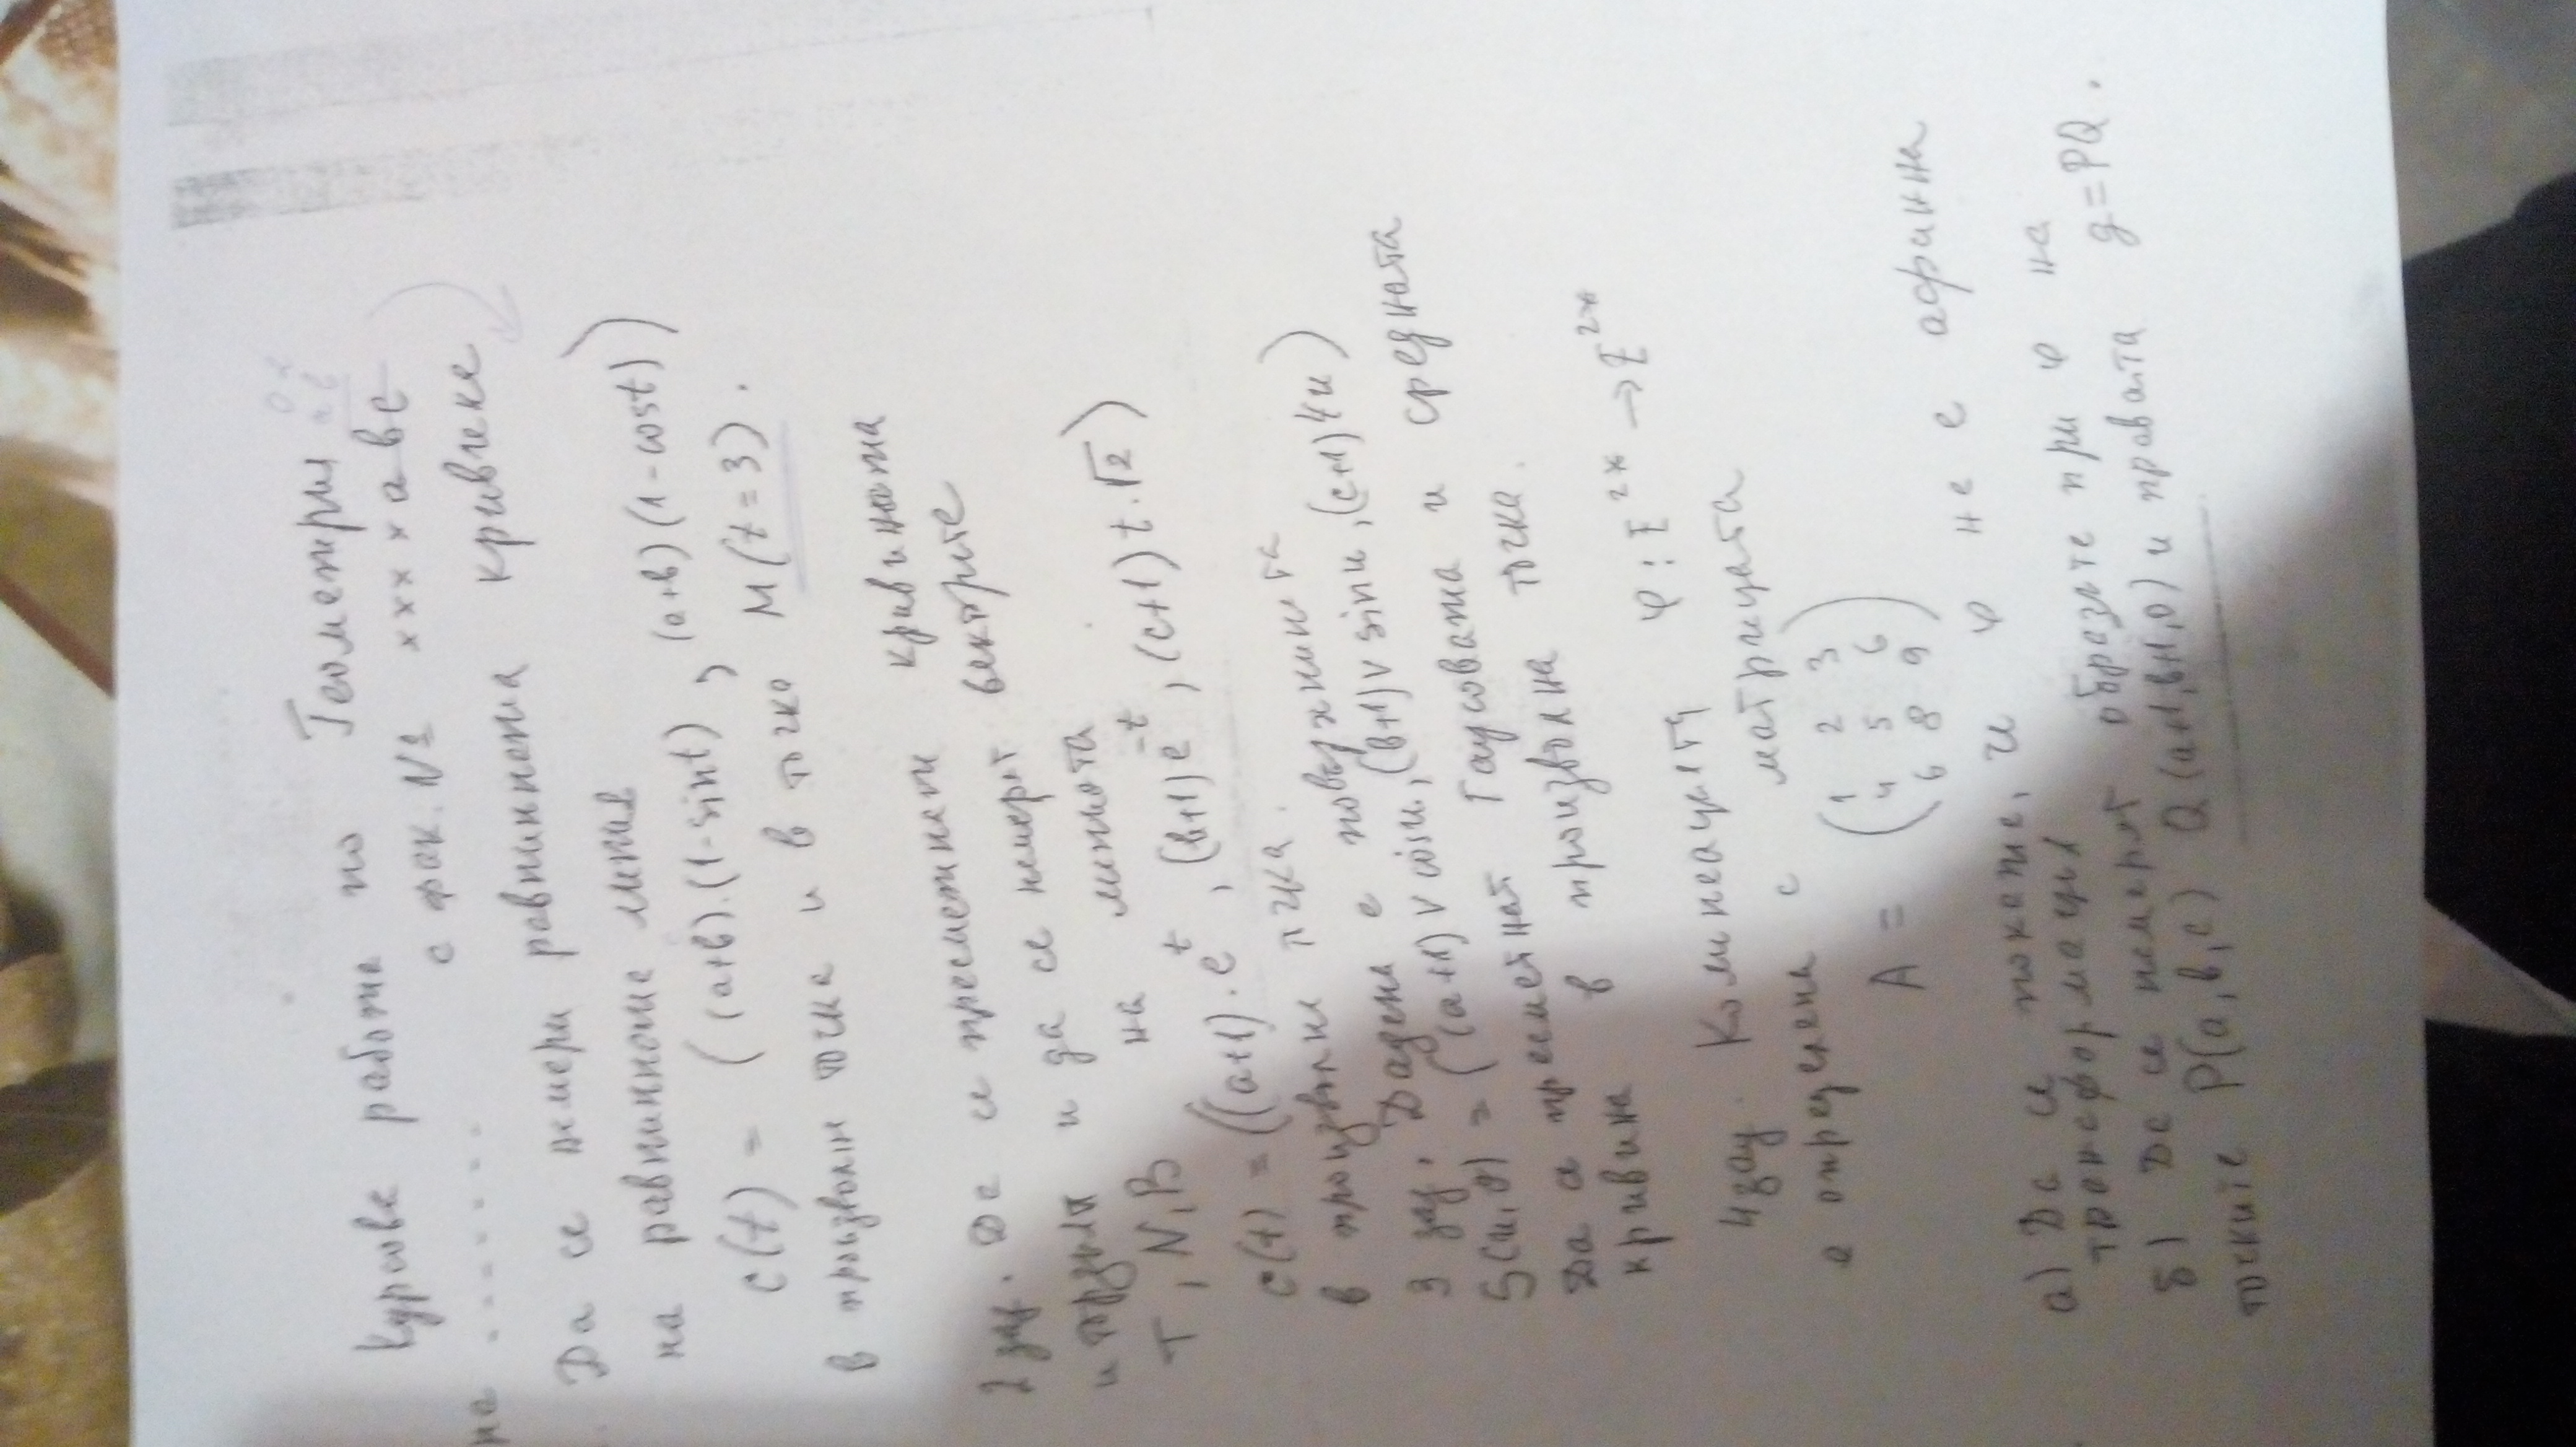 Курсова работа по Геометрия
на - - - - - - - с фак. № xxxxавс
Да се намери равнинната кривина
на равнинната линия
c(t) = ((a+b).(1-sint), (a+b)(1-cost))
в произволна точка и в точка M(t=3).
2 зад. Да се пресметнат кривината
и торзията и да се намерят векторите
T, N, B на линията
c(t) = ((a+1).e^t, (b+1)e^-t, (c+1)t.√2)
в произволна точка.
3 зад. Дадена е повърхнината
S(u,v) = ((a+1)v cosu, (b+1)v sinu, (c+1)4u)
Да се пресметнат Гаусовата и средната
кривина в произволна точка.
4 зад. Колинеацията φ: E^2* → E^2*
е определена с матрицата
A = (1 2 3
4 5 6
6 8 9)
а) Да се покаже, че φ не е афинна
трансформация
б) Да се намерят образите при φ на
точките P(a,b,c) Q(a+1,b+1,0) и правата g=PQ.